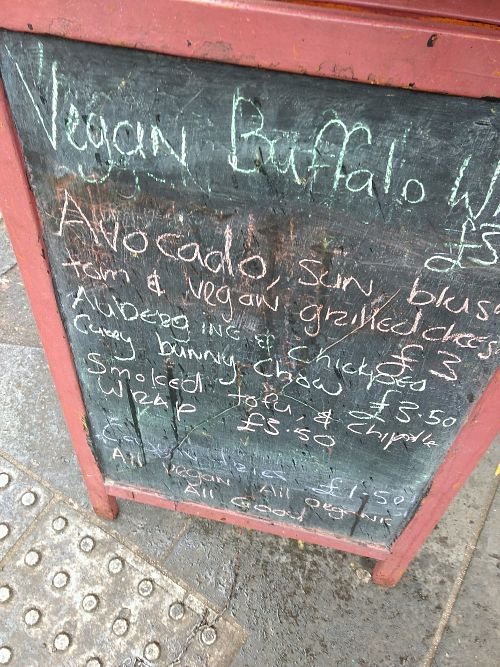 Vegan Buffalo W
£3
Avocado, sun blus
tom & vegan grilled chees
£3
Aubergine & Chickpea
Curry bunny chow £3.50
Smoked tofu & Chipotle
Wrap £3.50
£1.50
All vegan All organic
All Good